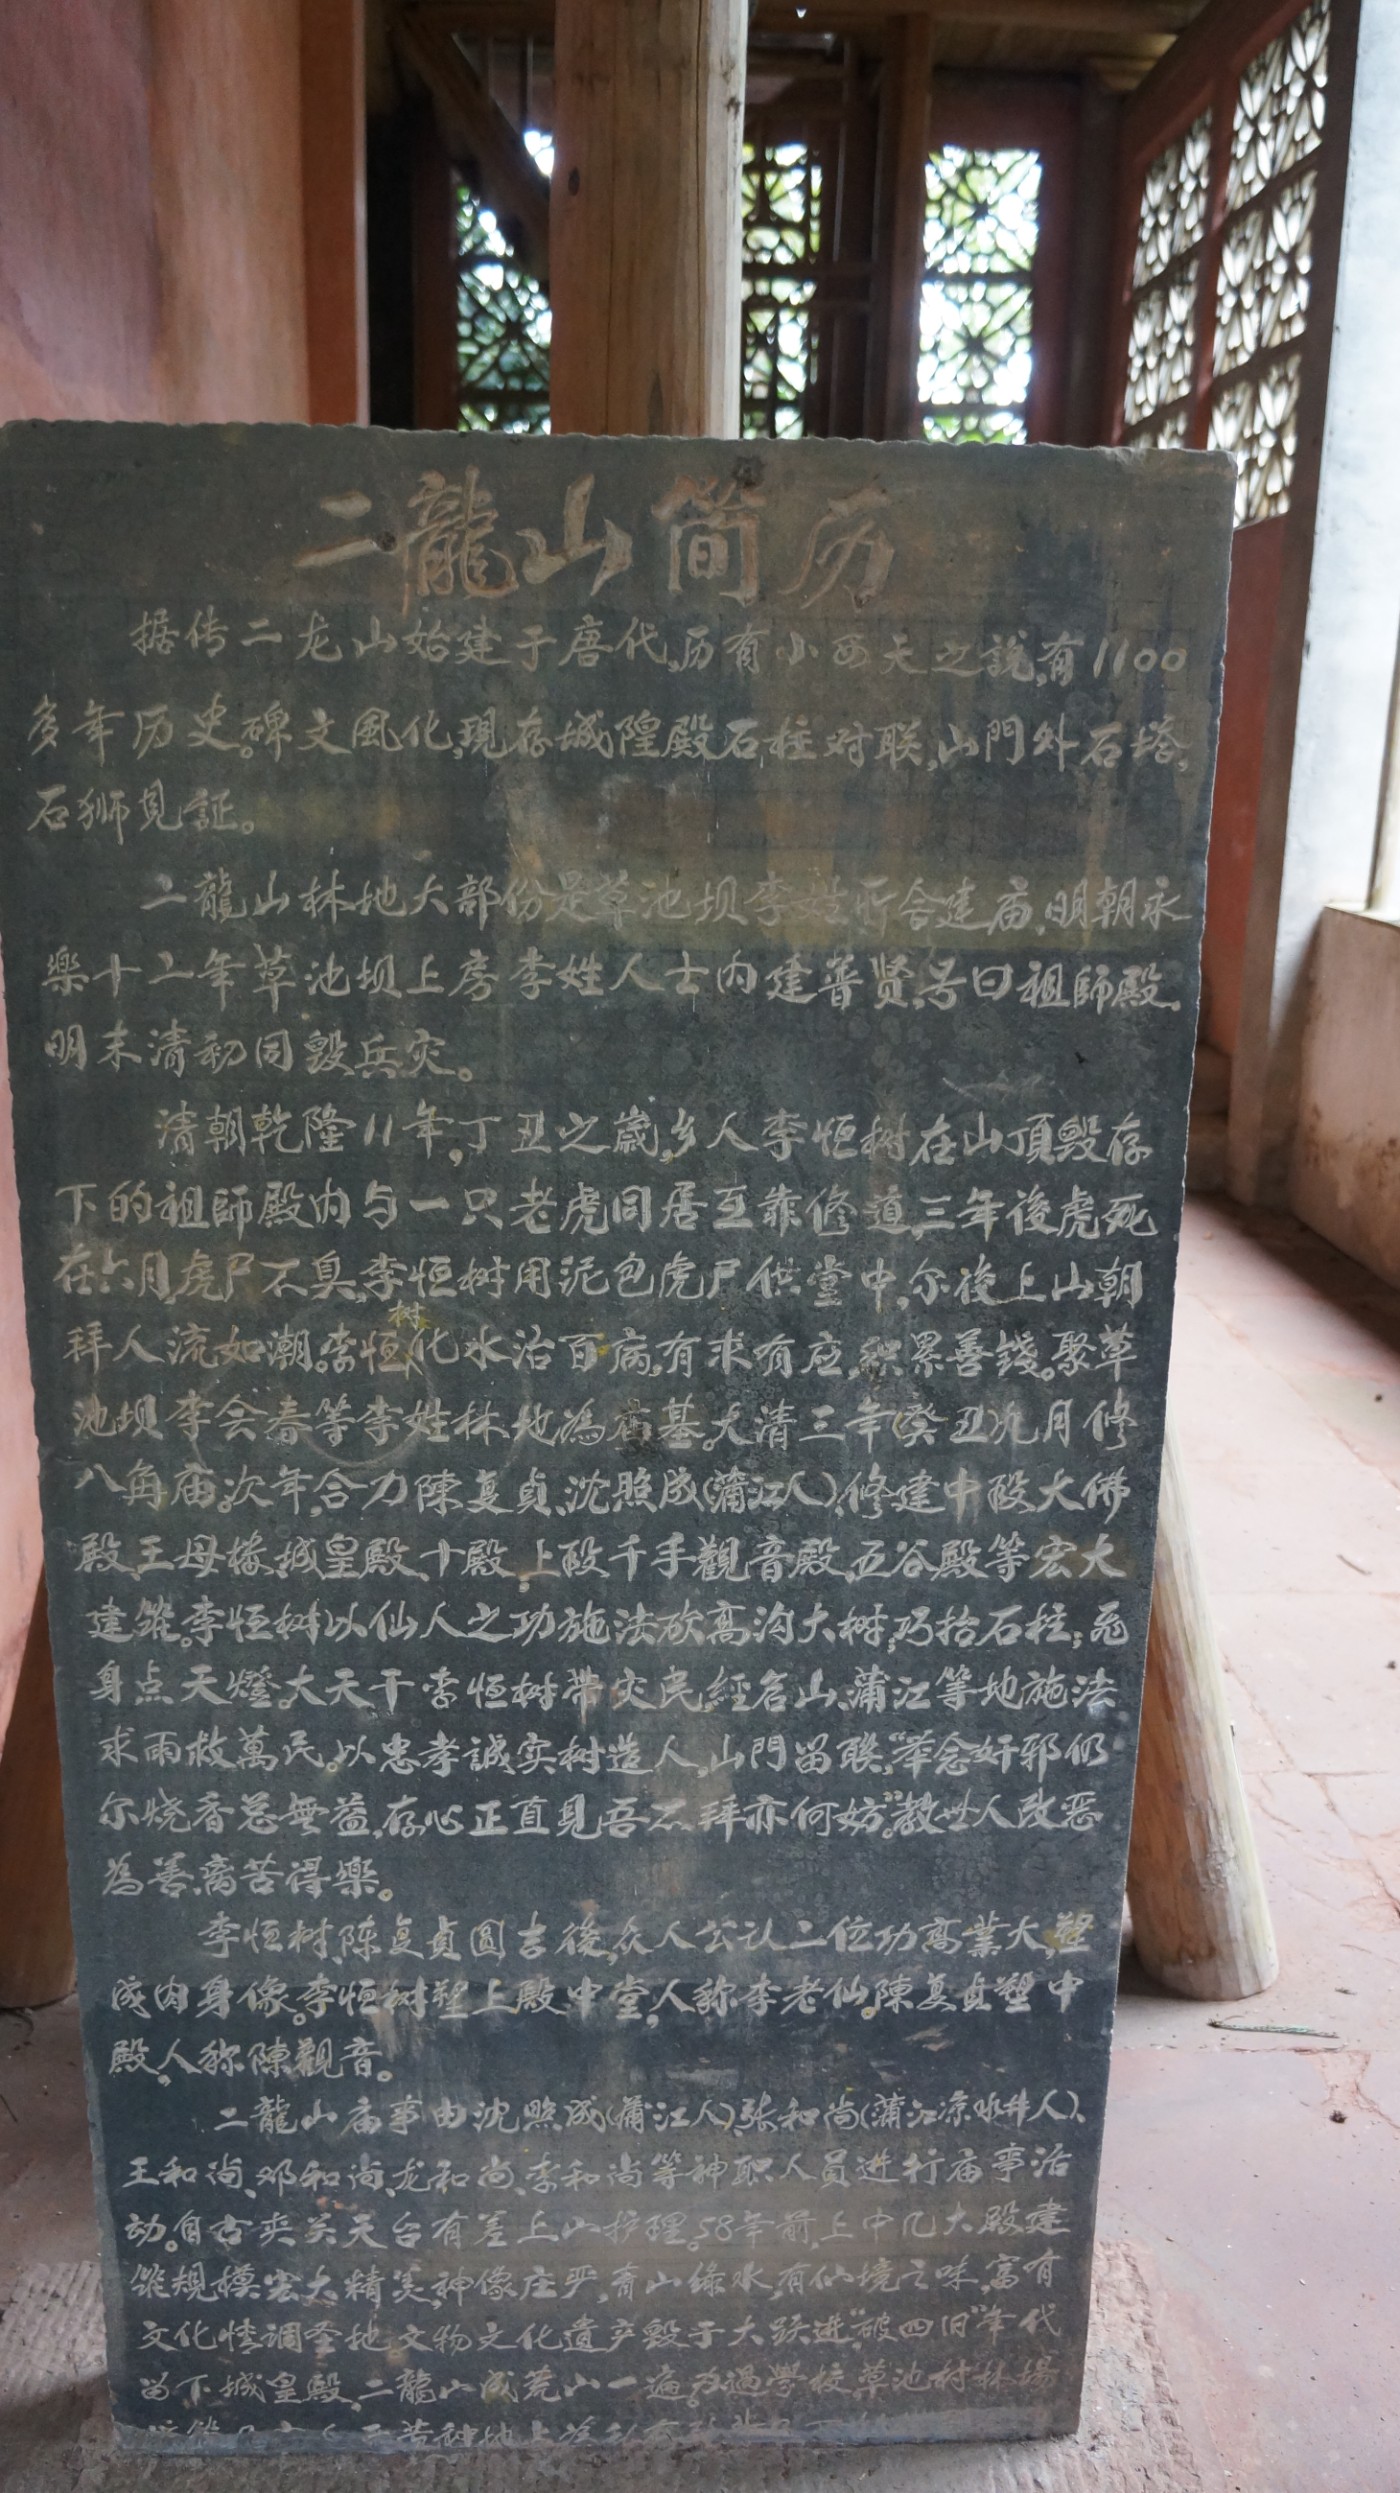 二龍山简历
据传二龙山始建于唐代,历有小西天之說,有1100
多年历史。碑文風化,現存城隍殿石柱对联,山門外石塔,
石狮見証。
二龍山林地大部份是草池坝李姓所合建庙,明朝永
樂十二年草池坝上房李姓人士内建普贤,号曰祖師殿。
明末清初同毁兵灾。
清朝乾隆11年,丁丑之歲,乡人李恒树在山頂毁存
下的祖師殿内与一只老虎同居互靠修道,三年後虎死
在六月,虎尸不臭,李恒树用泥包虎尸供堂中,尔後上山朝
拜人流如潮。李恒树化水治百病,有求有应,积累善錢。聚草
池坝李会春等李姓林地為庙基。大清三年(癸丑)九月修
八角庙。次年,合力陳复貞、沈照成(蒲江人),修建中殿大佛
殿、王母楼、城皇殿、十殿,上殿千手觀音殿、五谷殿等宏大
建筑。李恒树以仙人之功施法砍高沟大树;巧抬石柱;
身点天燈。大天干李恒树带灾民經名山、蒲江等地施法
求雨救萬民。以忠孝誠实树造人。山門留联,“举念奸邪仍
尔烧香总無益,存心正直見吾不拜亦何妨。”教世人改恶
為善,离苦得樂。
李恒树、陈复貞圆吉後,众人公认二位功高業大,塑
成肉身像。李恒树塑上殿中堂,人称李老仙。陳复貞塑中
殿,人称陳觀音。
二龍山庙事由沈照成(蒲江人)、张和尚(蒲江凉水井人)、
王和尚、邓和尚、龙和尚、李和尚等神职人員进行庙事活
动。自古夹关天台有差上山护理。58年前,上中几大殿建
筑規模宏大精美,神像庄严,青山绿水,有仙境之味,富有
文化情調圣地。文物文化遺产毁于大跃进“破四旧”年代
留下城皇殿。二龍山成荒山一遍。办過學校,草池村林場